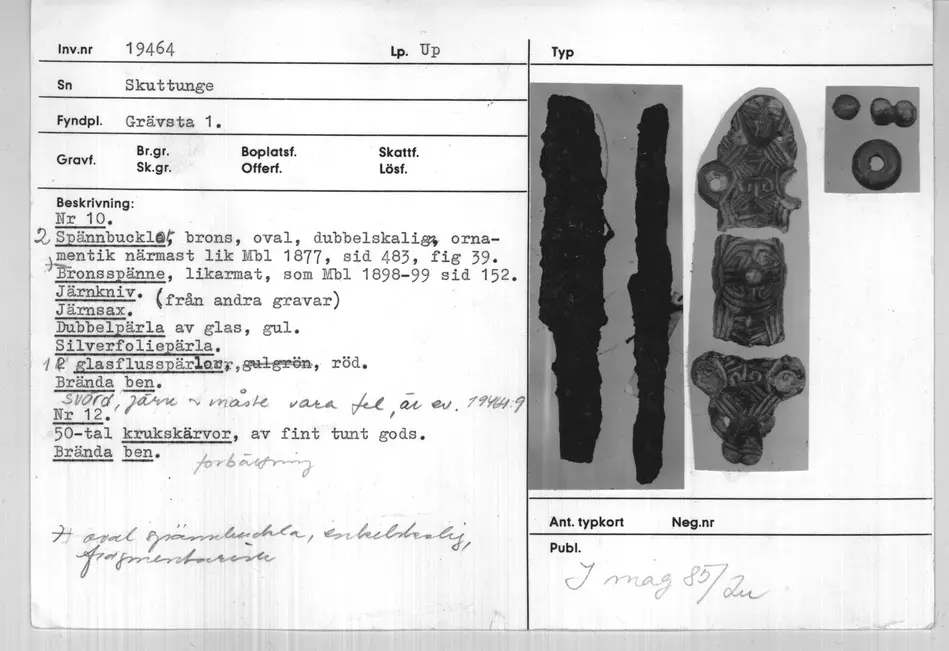 Inv.nr 19464 Lp. Up
Sn Skuttunge
Fyndpl. Grävsta 1.
Gravf. Br.gr. Boplatsf. Skattf.
Sk.gr. Offerf. Lösf.
Beskrivning:
Nr 10.
2 Spännbucklor, brons, oval, dubbelskalig, orna-
mentik närmast lik Mbl 1877, sid 483, fig 39.
Bronsspänne, likarmat, som Mbl 1898-99 sid 152.
Järnkniv. (från andra gravar)
Järnsax.
Dubbelpärla av glas, gul.
Silverfoliepärla.
1 2 glasflusspärlor, gulgrön, röd.
Brända ben.
svärd, järn måste vara fel, är ev. 19464:9
Nr 12.
50-tal krukskärvor, av fint tunt gods.
Brända ben.
förbättring
oval spännbuckla, enkelskalig,
fragmentarisk
Typ
Ant. typkort Neg.nr
Publ.
I mag 85/